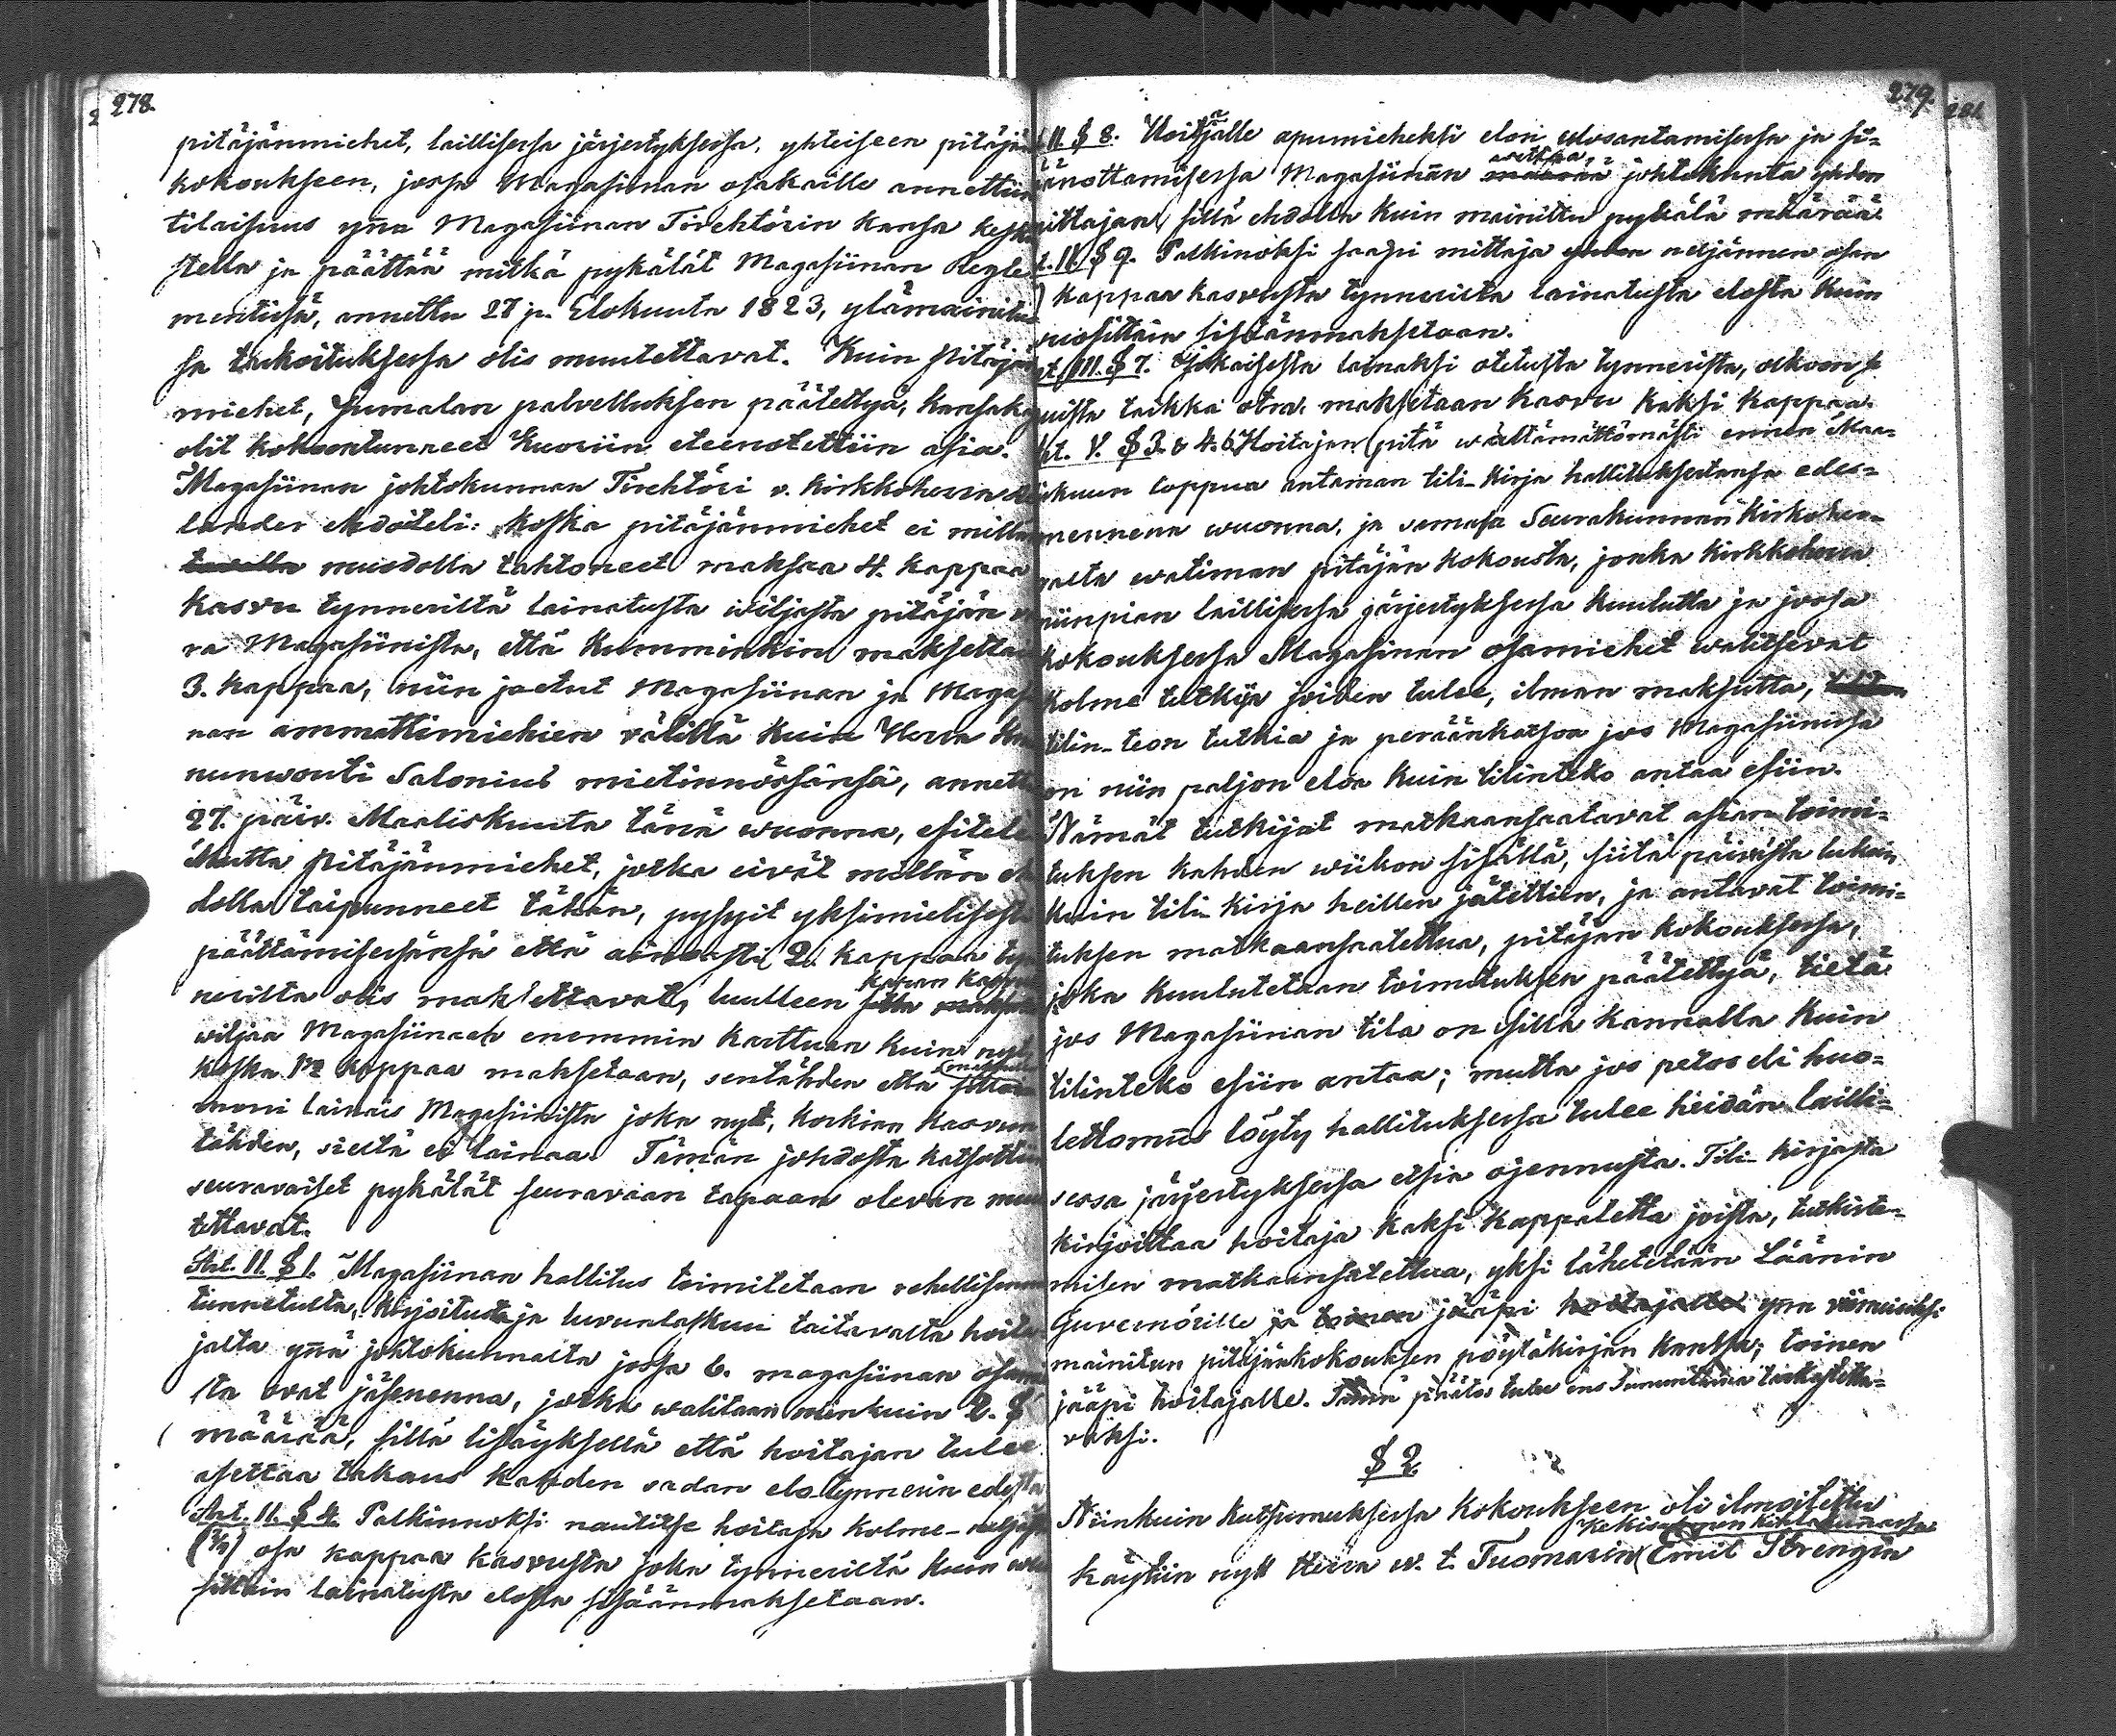 278.
pitäjänmiehet, laillisessa järjestyksessä, yhteiseen pitäjän
kokoukseen, jossa Magasiinan osakaille annettiin
tilaisuus ynnä Magasiinan Tirehtörin kansa kesku
stella ja päättää mitkä pykälät Magasiinan Regle
mentissä, annettu 27 p. Elokuuta 1823, ylämainitus
sa tarkoituksessa olis muutettavat. Kuin Pitäjän
miehet, Jumalan palvelluksen päätettyä, kansaka
olit kokoontunneet Kuoriin eteenotettiin asia.
Magasiinan johtokunnan Tirehtöri v. kirkkoherra
lander ehdoiteli: koska pitäjänmiehet ei millä
muodolla tahtoneet maksaa 4. kappaa
kasvu tynneriltä lainatusta wiljasta pitäjän
ra Magasiinista, että kumminkin maksettai
3. kappaa, niin jaetut Magasiinan ja Magasi
nan ammattimiehien välillä kuin Herra
nunwouti Salonius mietinnössänsä, annettu
27. päiv. Maaliskuuta tänä wuonna, esiteli
Mutta Pitäjänmiehet, jotka eivät millän eh
dolla taipunneet tähän, pysyit yksimielisesti
päättämisessänsä että ainoasti 2. kappaa tyn
neriltä olis maksettavat, luulleen
wiljaa Magasiinaan enemmin karttuan kuin nyt,
koska kappaa maksetaan, sentähden että
moni lainais Magasiinista joka nyt, korkian kasvun
tähden, sieltä ei lainaa. Tämän johdosta katsottin
seuravaiset pykälät seuravaan tapaan olevan muu
tettavat.
Art. II. § 1. Magasiinan hallitus toimitetaan rehellisen
tunnetulta, kirjoitusta ja luvunlaskun taitavalta hoita
jalta ynnä johtokunnalta jossa 6. magasiinan osami
sta ovat jäsenenna, jotka walitaan niinkuin 2. §
määrää, sillä lisäyksellä että hoitajan tulee
asettaa takaus kahden sadan elo-tynnerin edestä
Art. II. § 4. Palkinnoksi nautitse hoitaja kolme-neljäs
(3/4) osa kappaa kasvusta joka tynneriltä kuin wuo
sittain lainatusta elosta sisäänmaksetaan.
279.
II. § 8. Hoitajalle apumieheksi elon ulosantamisessa ja si-
änottamisessa Magasiinan johtokunta yhden
mittajan, sillä ehdolla kuin mainittu pykälä määrää
t. II. § 9. Palkinoksi saapi mittaja neljännen osan
kappaa kasvusta tynneriltä lainatusta elosta kuin
wuosittain sisäänmaksetaan.
rt. III. § 7. Jokaisesta lainaksi otetusta tynneristä, olkoon se
ruista taikka otra, maksetaan kasvu kaksi kappaa.
Art. V. § 3. & 4. Hoitajan pitä wälttämättömästi ennen Maa-
iskuun loppua antaman tili-kirja hallituksestansa edes-
mennenä wuonna, ja samasa Seurakunnan kirkoher-
ralta watiman pitäjän kokousta, jonka kirkkoherra
niinpian laillisessa järjestyksessä kuulutta ja jossa
kokouksessa Magasinan osamiehet walitsevat
kolme tutkija joiden tulee, ilman maksutta,
tilin-teon tutkia ja peräänkatsoa jos Magasiinissa
on niin paljon eloa kuin tilinteko antaa esiin.
Nämät tutkijat matkaansaatavat asian toimi-
tuksen kahden wiikon sisällä, siitä päivästä lukein
kuin tili-kirja heillen jätettiin, ja antavat toimi-
tuksen matkaansaatettua, pitäjän kokouksessa,
joka kuulutetaan toimituksen päätettyä, tietä
jos Magasiinan tila on sillä kannalla kuin
tilinteko esiin antaa; mutta jos petos eli huo-
lettomus löyty hallituksessa tulee heidän lailli-
sessa järjestyksessä etsiä ojennusta. Tili-kirjasta
kirjoittaa hoitaja kaksi kappaletta joista, tutkiste-
misen matkaansatettua, yksi lähetetään Läänin
Guvernörille ynnä viimeiseksi
mainitun pitäjänkokouksen pöytäkirjan kanssa; toinen
jääpi hoitajalle. Tämä päätös tulee ens Sunnuntaina tarkastetta-
vaksi.
§ 2
Niinkuin kutsumuksessa kokoukseen oli ilmoitettu
Käkisalmen kihlakunnassa
käytiin nytt Herra w. t. Tuomarin Emil Strengin